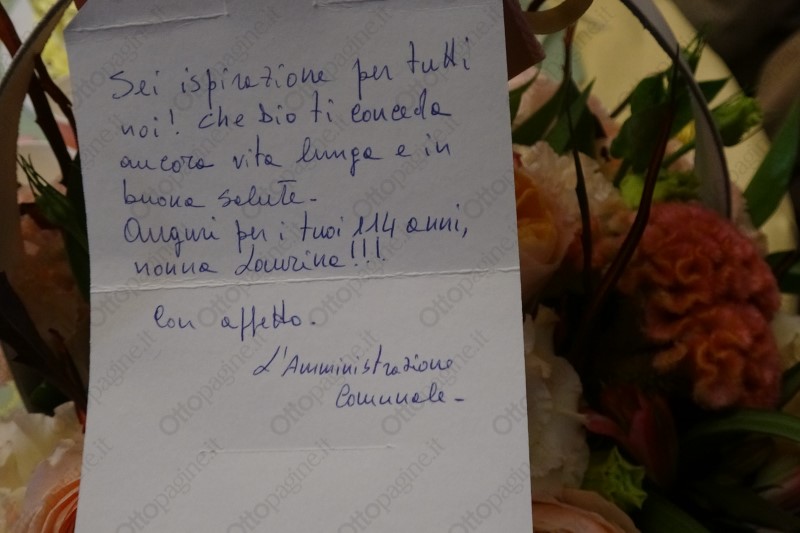 Sei ispirazione per tutti
noi! che Dio ti conceda
ancora vita lunga e in
buona salute.
Auguri per i tuoi 114 anni,
nonna Laurina!!!
Con affetto.
L'Amministrazione
Comunale.
Ottopagine.it